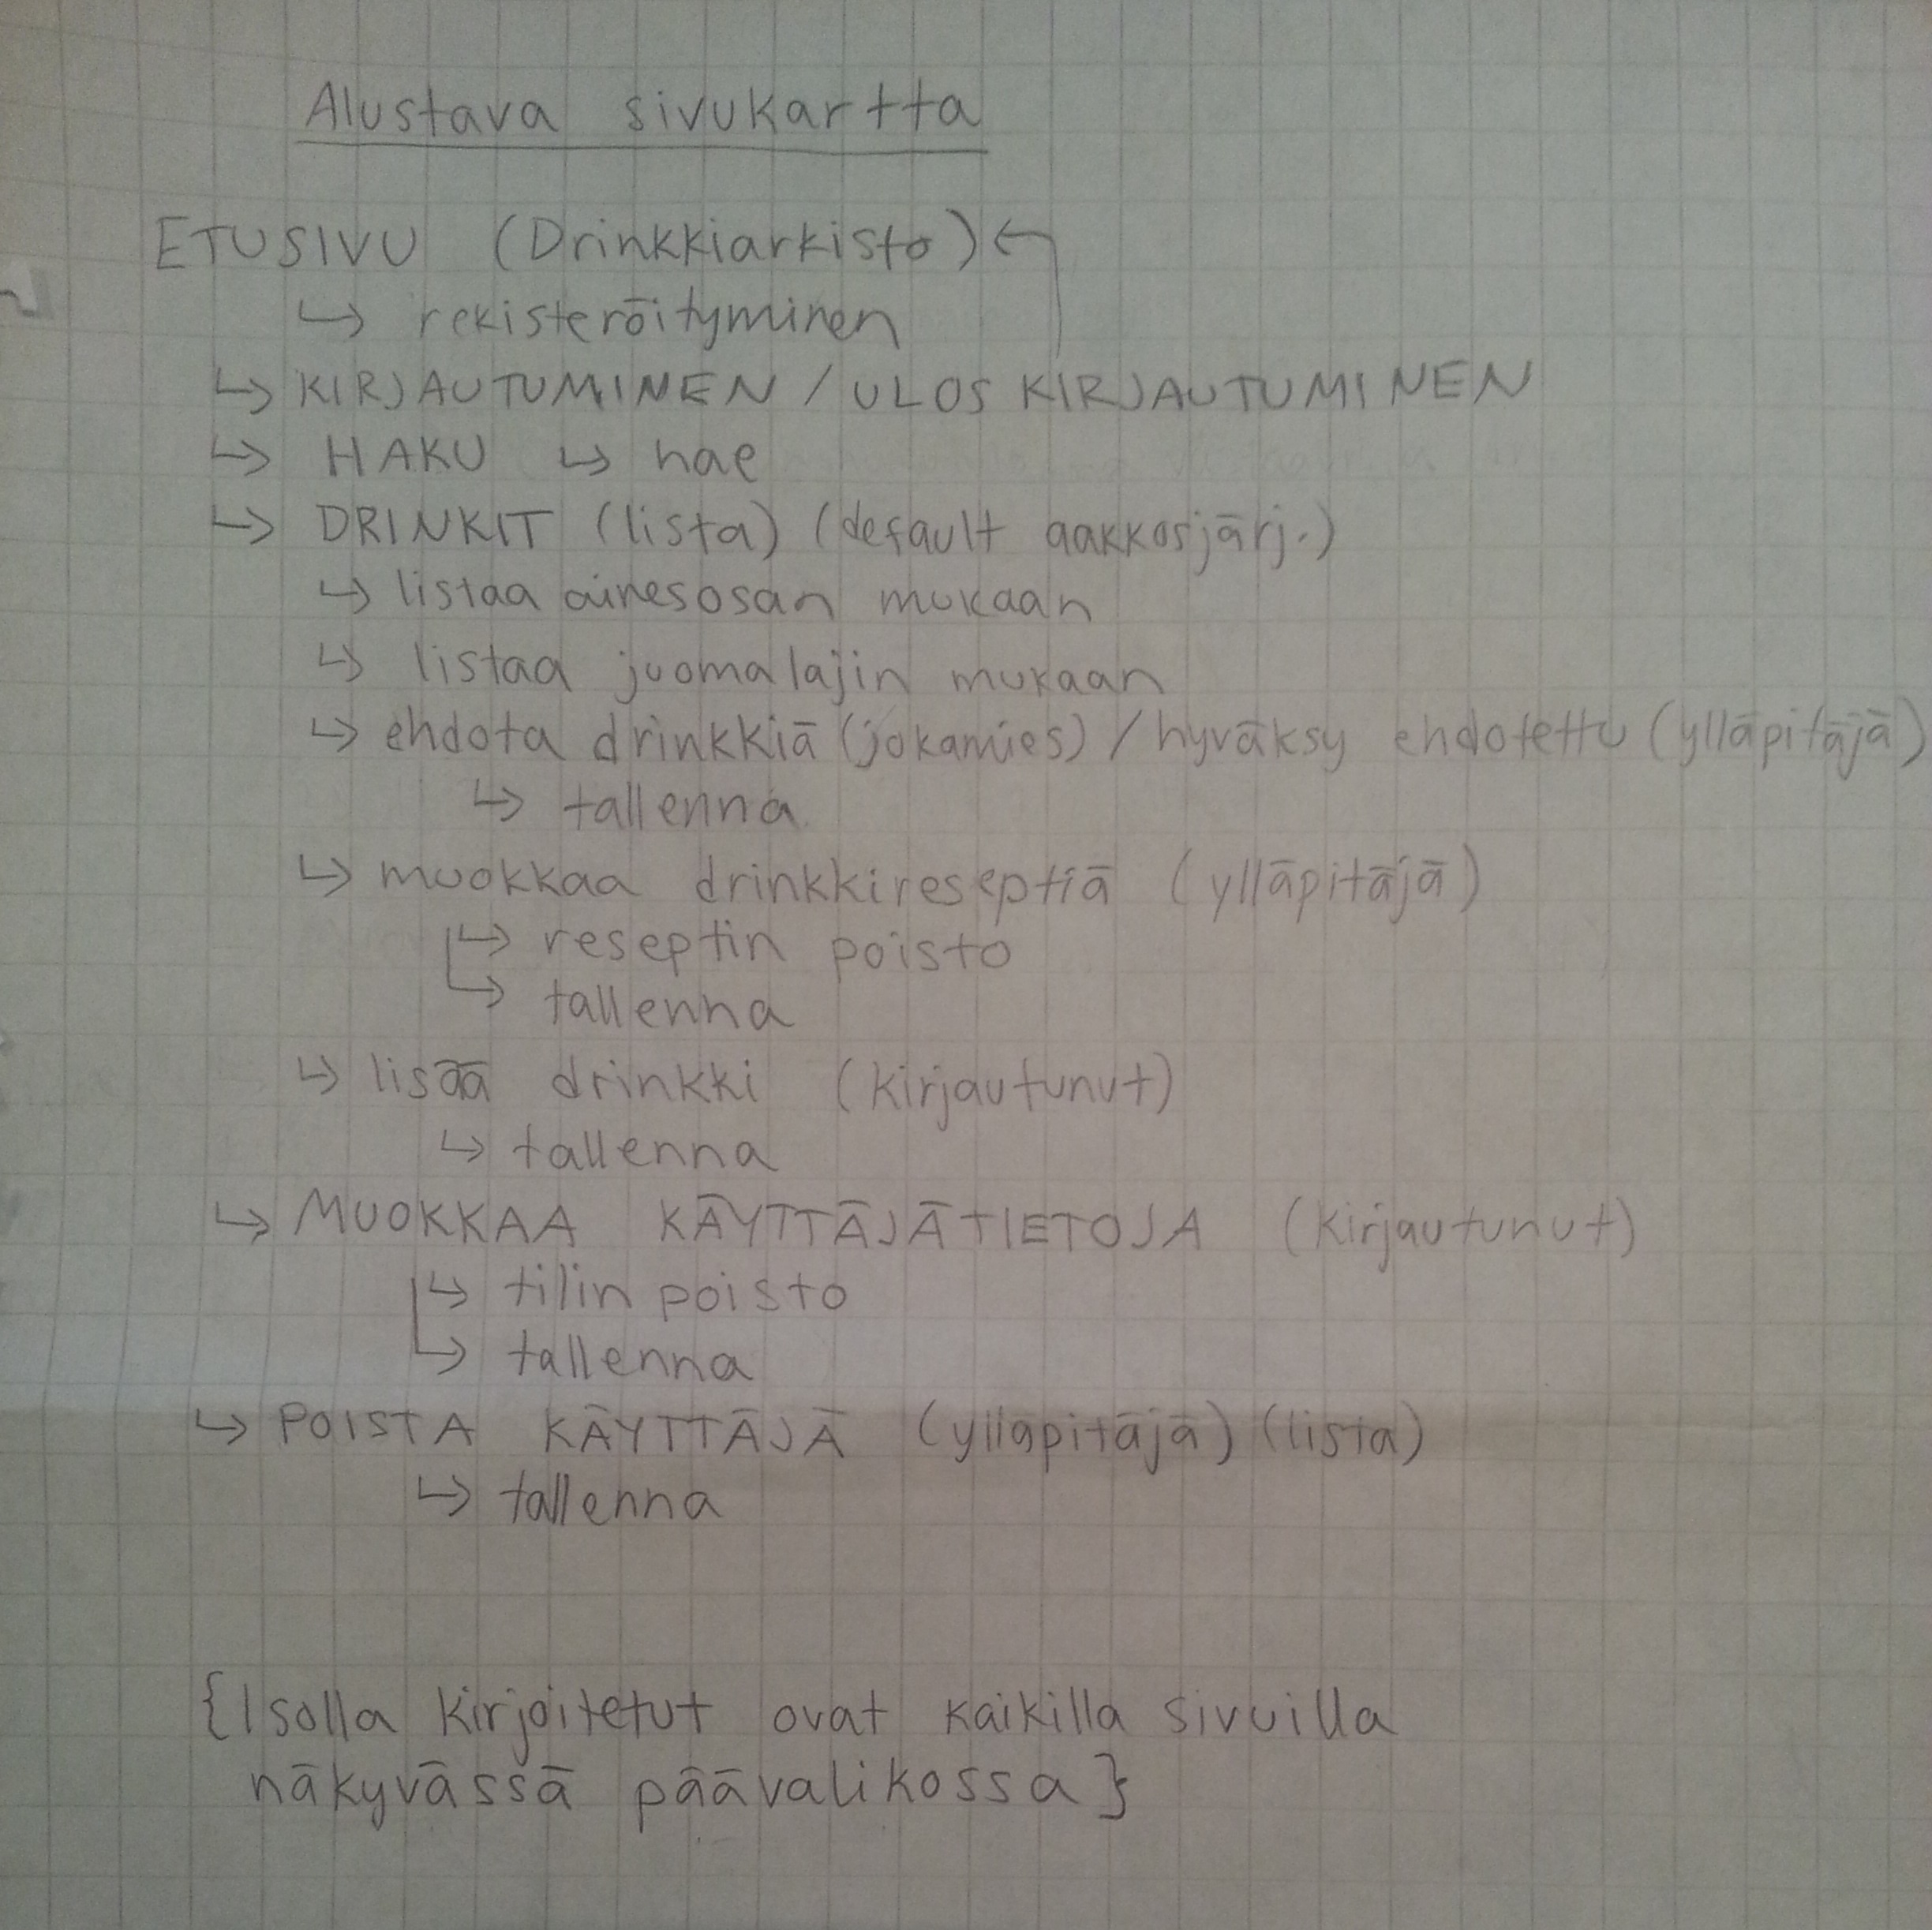 Alustava sivukartta
ETUSIVU (Drinkkiarkisto) ←
↳ rekisteröityminen
↳ KIRJAUTUMINEN / ULOS KIRJAUTUMINEN
↳ HAKU ↳ hae
↳ DRINKIT (lista) (default aakkosjärj.)
↳ listaa ainesosan mukaan
↳ listaa juomalajin mukaan
↳ ehdota drinkkiä (jokamies) / hyväksy ehdotettu (ylläpitäjä)
↳ tallenna
↳ muokkaa drinkkireseptiä (ylläpitäjä)
↳ reseptin poisto
↳ tallenna
↳ lisää drinkki (kirjautunut)
↳ tallenna
↳ MUOKKAA KÄYTTÄJÄTIETOJA (kirjautunut)
↳ tilin poisto
↳ tallenna
↳ POISTA KÄYTTÄJÄ (ylläpitäjä) (lista)
↳ tallenna
{Isolla kirjoitetut ovat kaikilla sivuilla
näkyvässä päävalikossa}